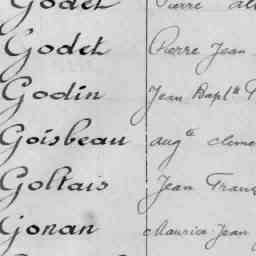 Godet Pierre
Godet Pierre Jean
Godin Jean Bapt^te
Goisbeau aug^te
Goltais Jean
Gonan Maurice Jean